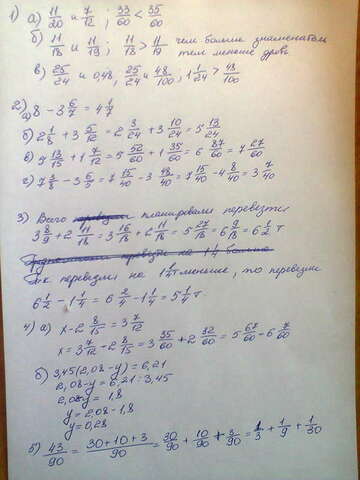 1) а) 11/20 и 7/12 ; 33/60 < 35/60
б) 11/18 и 11/19 ; 11/18 > 11/19 чем больше знаменатель
тем меньше дробь
в) 25/24 и 0,48, 25/24 и 48/100, 1 1/24 > 48/100
2) а) 8 - 3 6/7 = 4 1/7
б) 2 1/8 + 3 5/12 = 2 3/24 + 3 10/24 = 5 13/24
в) 5 13/15 + 1 7/12 = 5 52/60 + 1 35/60 = 6 87/60 = 7 27/60
г) 7 3/8 - 3 6/5 = 7 15/40 - 3 48/40 = 7 15/40 - 4 8/40 = 3 7/40
3) Всего планировали перевезти
3 8/9 + 2 11/18 = 3 16/18 + 2 11/18 = 5 27/18 = 6 9/18 = 6 1/2 т
Т.к перевезли на 1 1/4 т меньше, то перевезли
6 1/2 - 1 1/4 = 6 2/4 - 1 1/4 = 5 1/4 т.
4) а) x - 2 8/15 = 3 7/12
x = 3 7/12 + 2 8/15 = 3 35/60 + 2 32/60 = 5 67/60 = 6 7/60
б) 3,45(2,08 - y) = 6,21
2,08 - y = 6,21 : 3,45
2,08 - y = 1,8
y = 2,08 - 1,8
y = 0,28
5) 43/90 = (30 + 10 + 3)/90 = 30/90 + 10/90 + 3/90 = 1/3 + 1/9 + 1/30